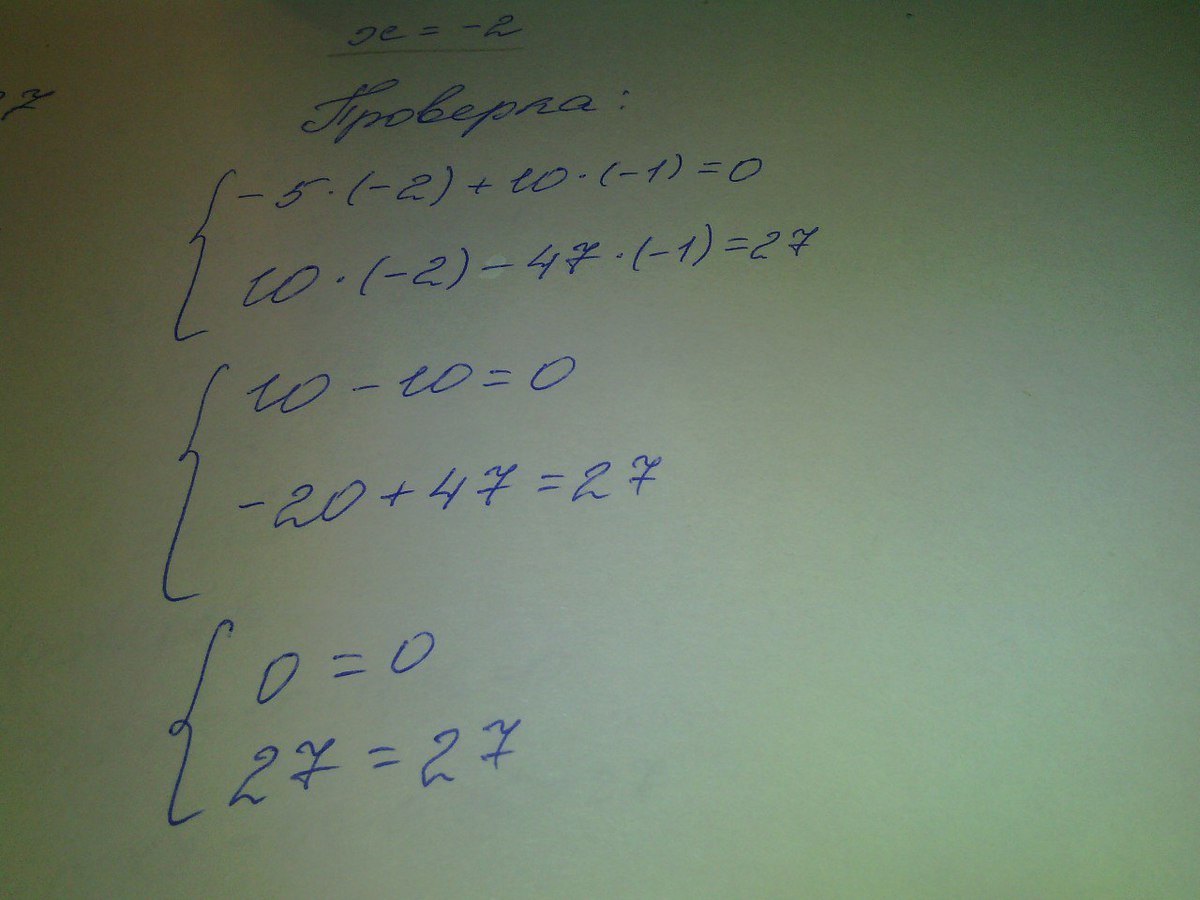 x = -2
Проверка:
-5·(-2)+10·(-1)=0
10·(-2)-47·(-1)=27
10-10=0
-20+47=27
0=0
27=27